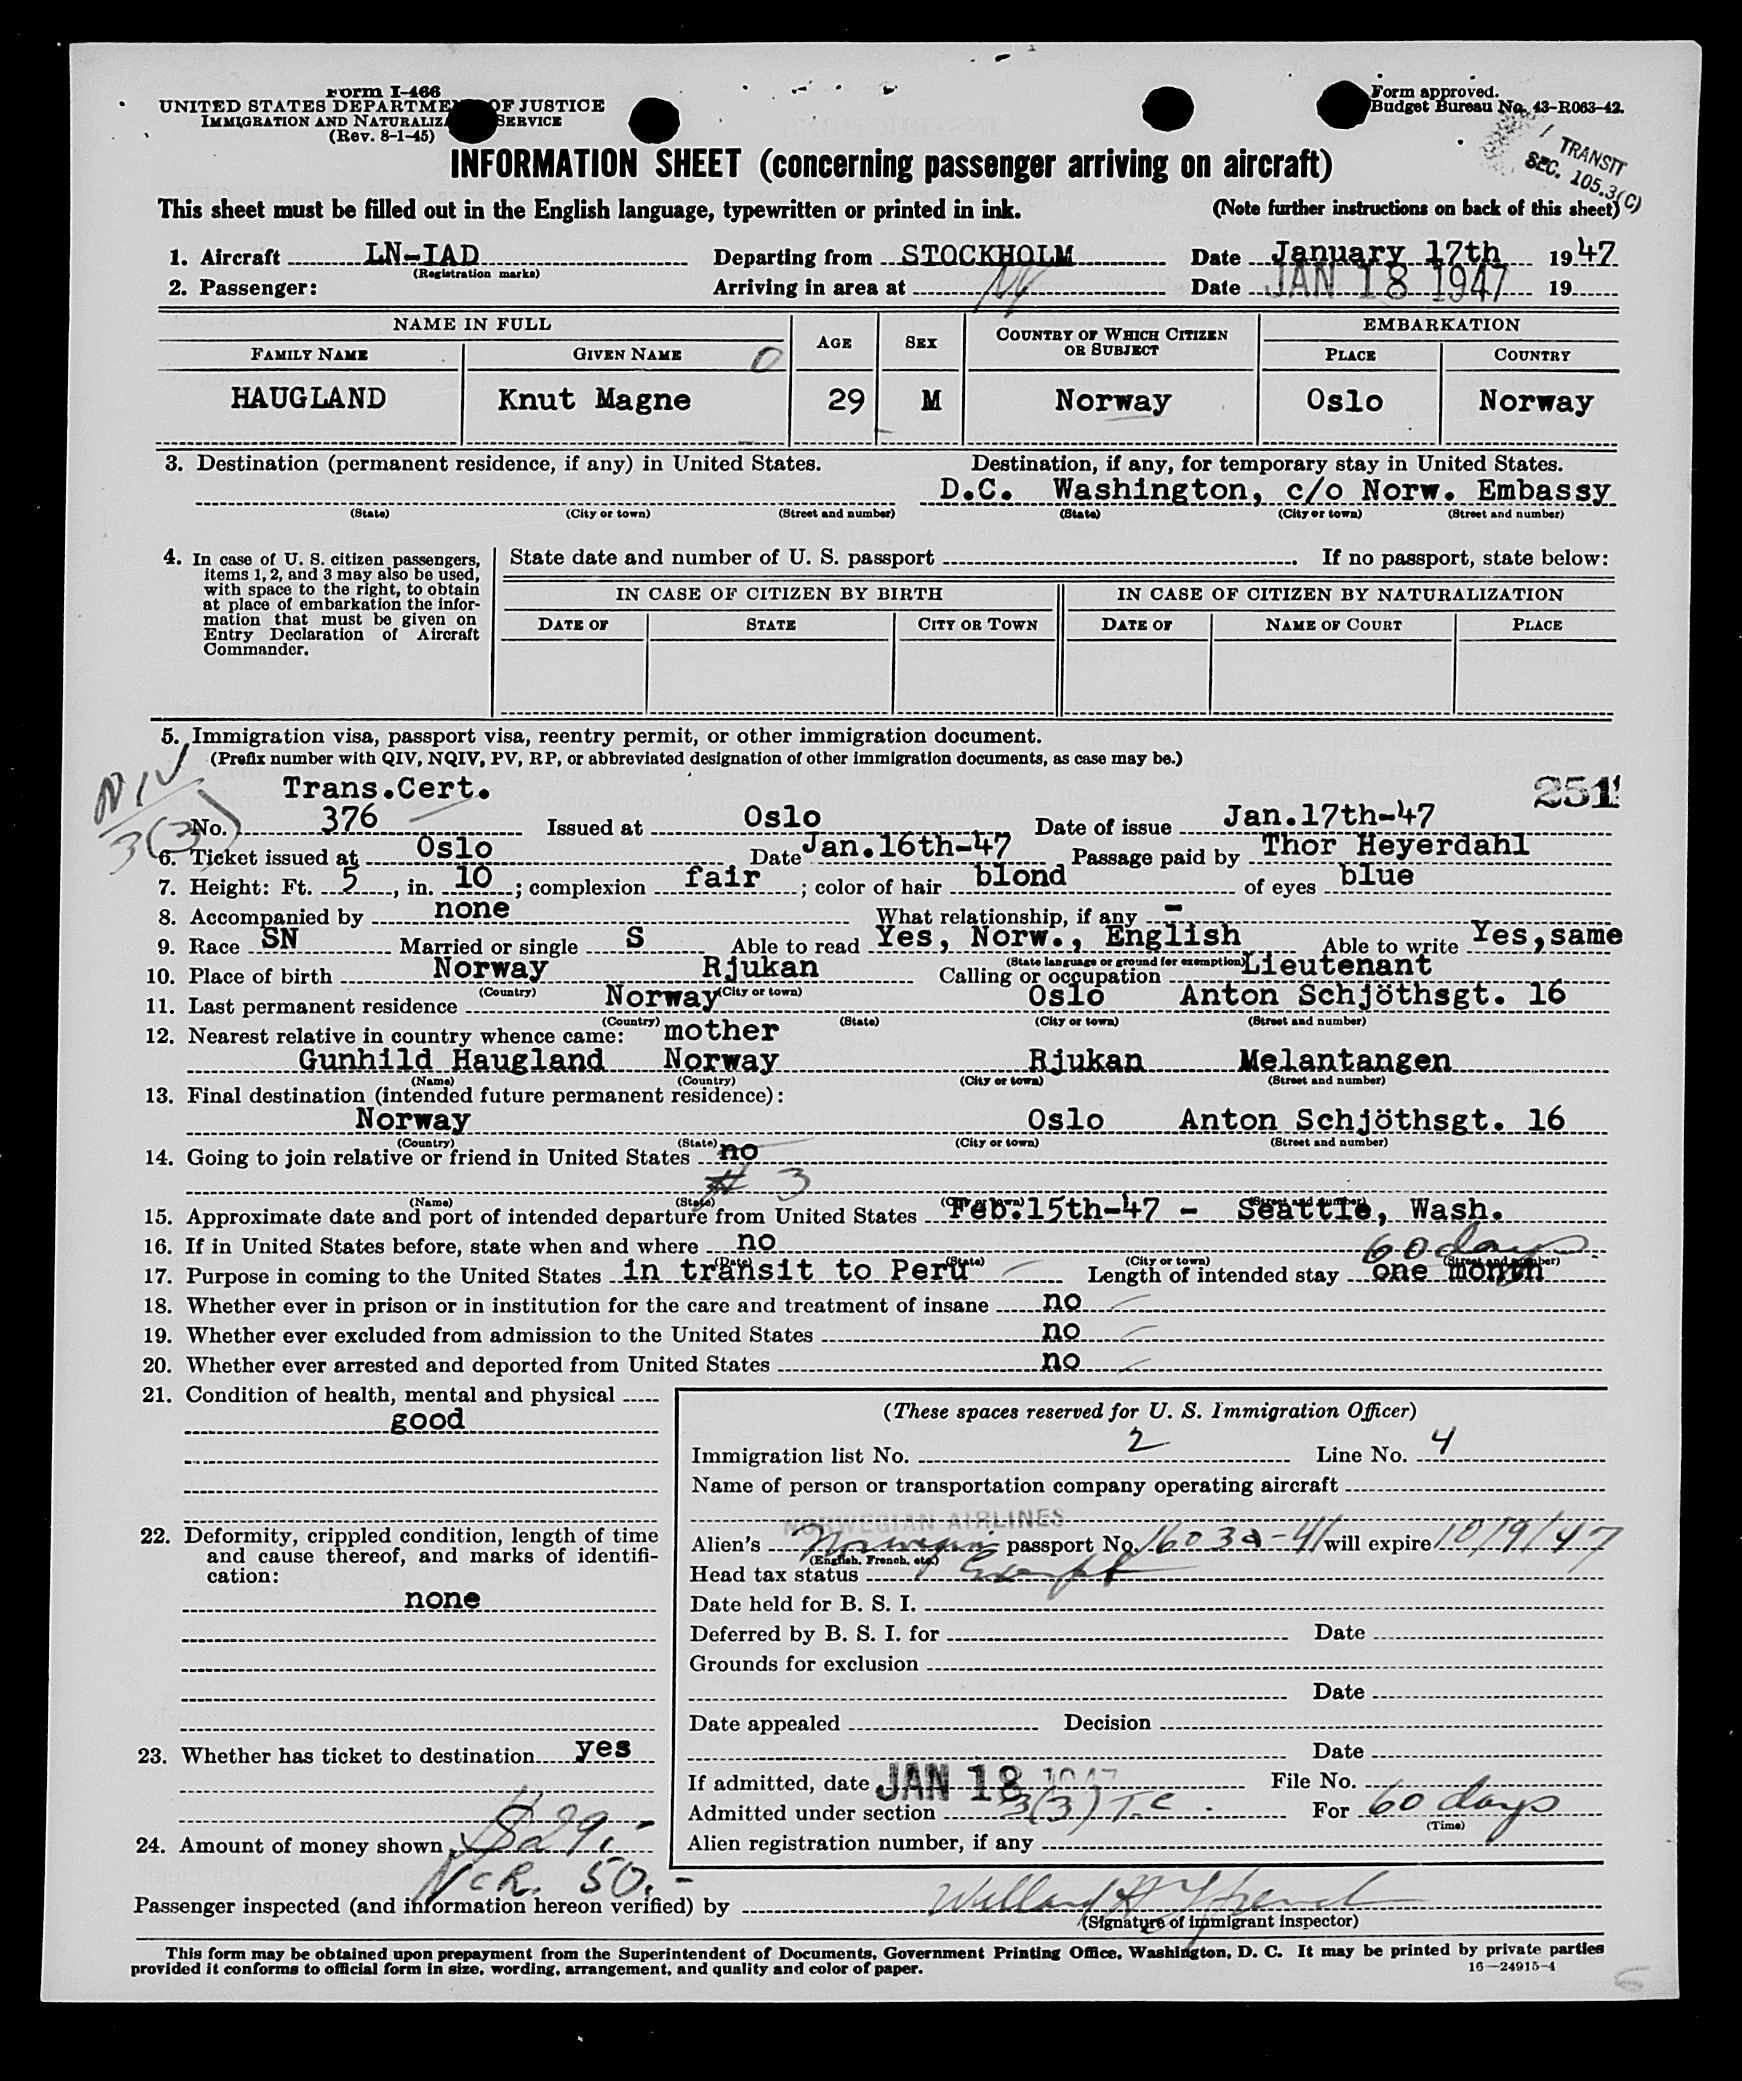 Form I-466
UNITED STATES DEPARTMENT OF JUSTICE
IMMIGRATION AND NATURALIZATION SERVICE
(Rev. 8-1-45)
Form approved.
Budget Bureau No. 43-R063-42.
TRANSIT
SEC. 105.3(C)
INFORMATION SHEET (concerning passenger arriving on aircraft)
This sheet must be filled out in the English language, typewritten or printed in ink. (Note further instructions on back of this sheet)
1. Aircraft LN-IAD Departing from STOCKHOLM Date January 17th 1947
(Registration marks)
2. Passenger: Arriving in area at NY Date JAN 18 1947 19
NAME IN FULL AGE SEX COUNTRY OF WHICH CITIZEN OR SUBJECT EMBARKATION
FAMILY NAME GIVEN NAME PLACE COUNTRY
HAUGLAND Knut Magne 29 M Norway Oslo Norway
3. Destination (permanent residence, if any) in United States. Destination, if any, for temporary stay in United States.
D.C. Washington, c/o Norw. Embassy
(State) (City or town) (Street and number) (State) (City or town) (Street and number)
4. In case of U. S. citizen passengers,
items 1, 2, and 3 may also be used,
with space to the right, to obtain
at place of embarkation the infor-
mation that must be given on
Entry Declaration of Aircraft
Commander.
State date and number of U. S. passport . If no passport, state below:
IN CASE OF CITIZEN BY BIRTH IN CASE OF CITIZEN BY NATURALIZATION
DATE OF STATE CITY OR TOWN DATE OF NAME OF COURT PLACE
5. Immigration visa, passport visa, reentry permit, or other immigration document.
(Prefix number with QIV, NQIV, PV, RP, or abbreviated designation of other immigration documents, as case may be.)
NIV
3(3)
Trans.Cert. 251
No. 376 Issued at Oslo Date of issue Jan.17th-47
6. Ticket issued at Oslo Date Jan.16th-47 Passage paid by Thor Heyerdahl
7. Height: Ft. 5, in. 10; complexion fair; color of hair blond of eyes blue
8. Accompanied by none What relationship, if any -
9. Race SN Married or single S Able to read Yes, Norw., English Able to write Yes, same
(State language or ground for exemption)
10. Place of birth Norway Rjukan Calling or occupation Lieutenant
(Country) (City or town)
11. Last permanent residence Norway Oslo Anton Schjöthsgt. 16
(Country) (State) (City or town) (Street and number)
12. Nearest relative in country whence came: mother
Gunhild Haugland Norway Rjukan Melantangen
(Name) (Country) (City or town) (Street and number)
13. Final destination (intended future permanent residence):
Norway Oslo Anton Schjöthsgt. 16
(Country) (State) (City or town) (Street and number)
14. Going to join relative or friend in United States no
# 3
(Name) (State) (City or town) (Street and number)
15. Approximate date and port of intended departure from United States Feb.15th-47 - Seattle, Wash.
16. If in United States before, state when and where no
60 days
(Date) (State) (City or town) (Street and number)
17. Purpose in coming to the United States in transit to Peru Length of intended stay one month
18. Whether ever in prison or in institution for the care and treatment of insane no
19. Whether ever excluded from admission to the United States no
20. Whether ever arrested and deported from United States no
21. Condition of health, mental and physical
good
22. Deformity, crippled condition, length of time
and cause thereof, and marks of identifi-
cation:
none
23. Whether has ticket to destination yes
24. Amount of money shown $29.-
NCR. 50.-
(These spaces reserved for U. S. Immigration Officer)
Immigration list No. 2 Line No. 4
Name of person or transportation company operating aircraft
NORWEGIAN AIRLINES
Alien's Norwegian passport No. 16039-41 will expire 10/9/47
(English, French, etc.)
Head tax status Exempt
Date held for B. S. I.
Deferred by B. S. I. for Date
Grounds for exclusion
Date
Date appealed Decision
Date
If admitted, date JAN 18 1947 File No.
Admitted under section 3(3) T.C. For 60 days
(Time)
Alien registration number, if any
Passenger inspected (and information hereon verified) by
(Signature of immigrant inspector)
This form may be obtained upon prepayment from the Superintendent of Documents, Government Printing Office, Washington, D. C. It may be printed by private parties
provided it conforms to official form in size, wording, arrangement, and quality and color of paper.
16—24915-4